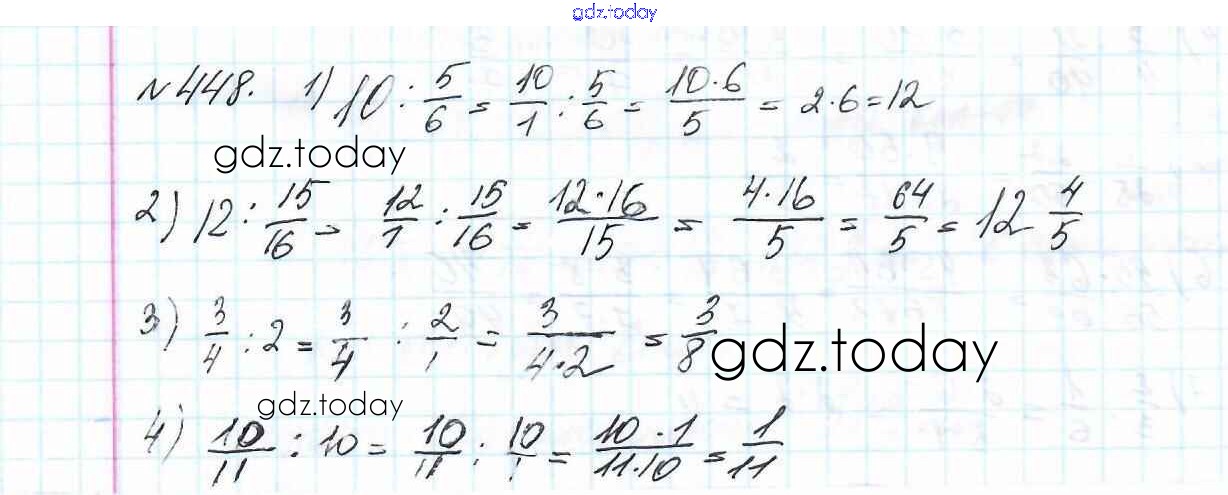 gdz.today
№448. 1) 10 : 5/6 = 10/1 : 5/6 = 10·6/5 = 2·6=12
gdz.today
2) 12 : 15/16 = 12/1 : 15/16 = 12·16/15 = 4·16/5 = 64/5 = 12 4/5
3) 3/4 : 2 = 3/4 : 2/1 = 3/4·2 = 3/8
gdz.today
gdz.today
4) 10/11 : 10 = 10/11 : 10/1 = 10·1/11·10 = 1/11